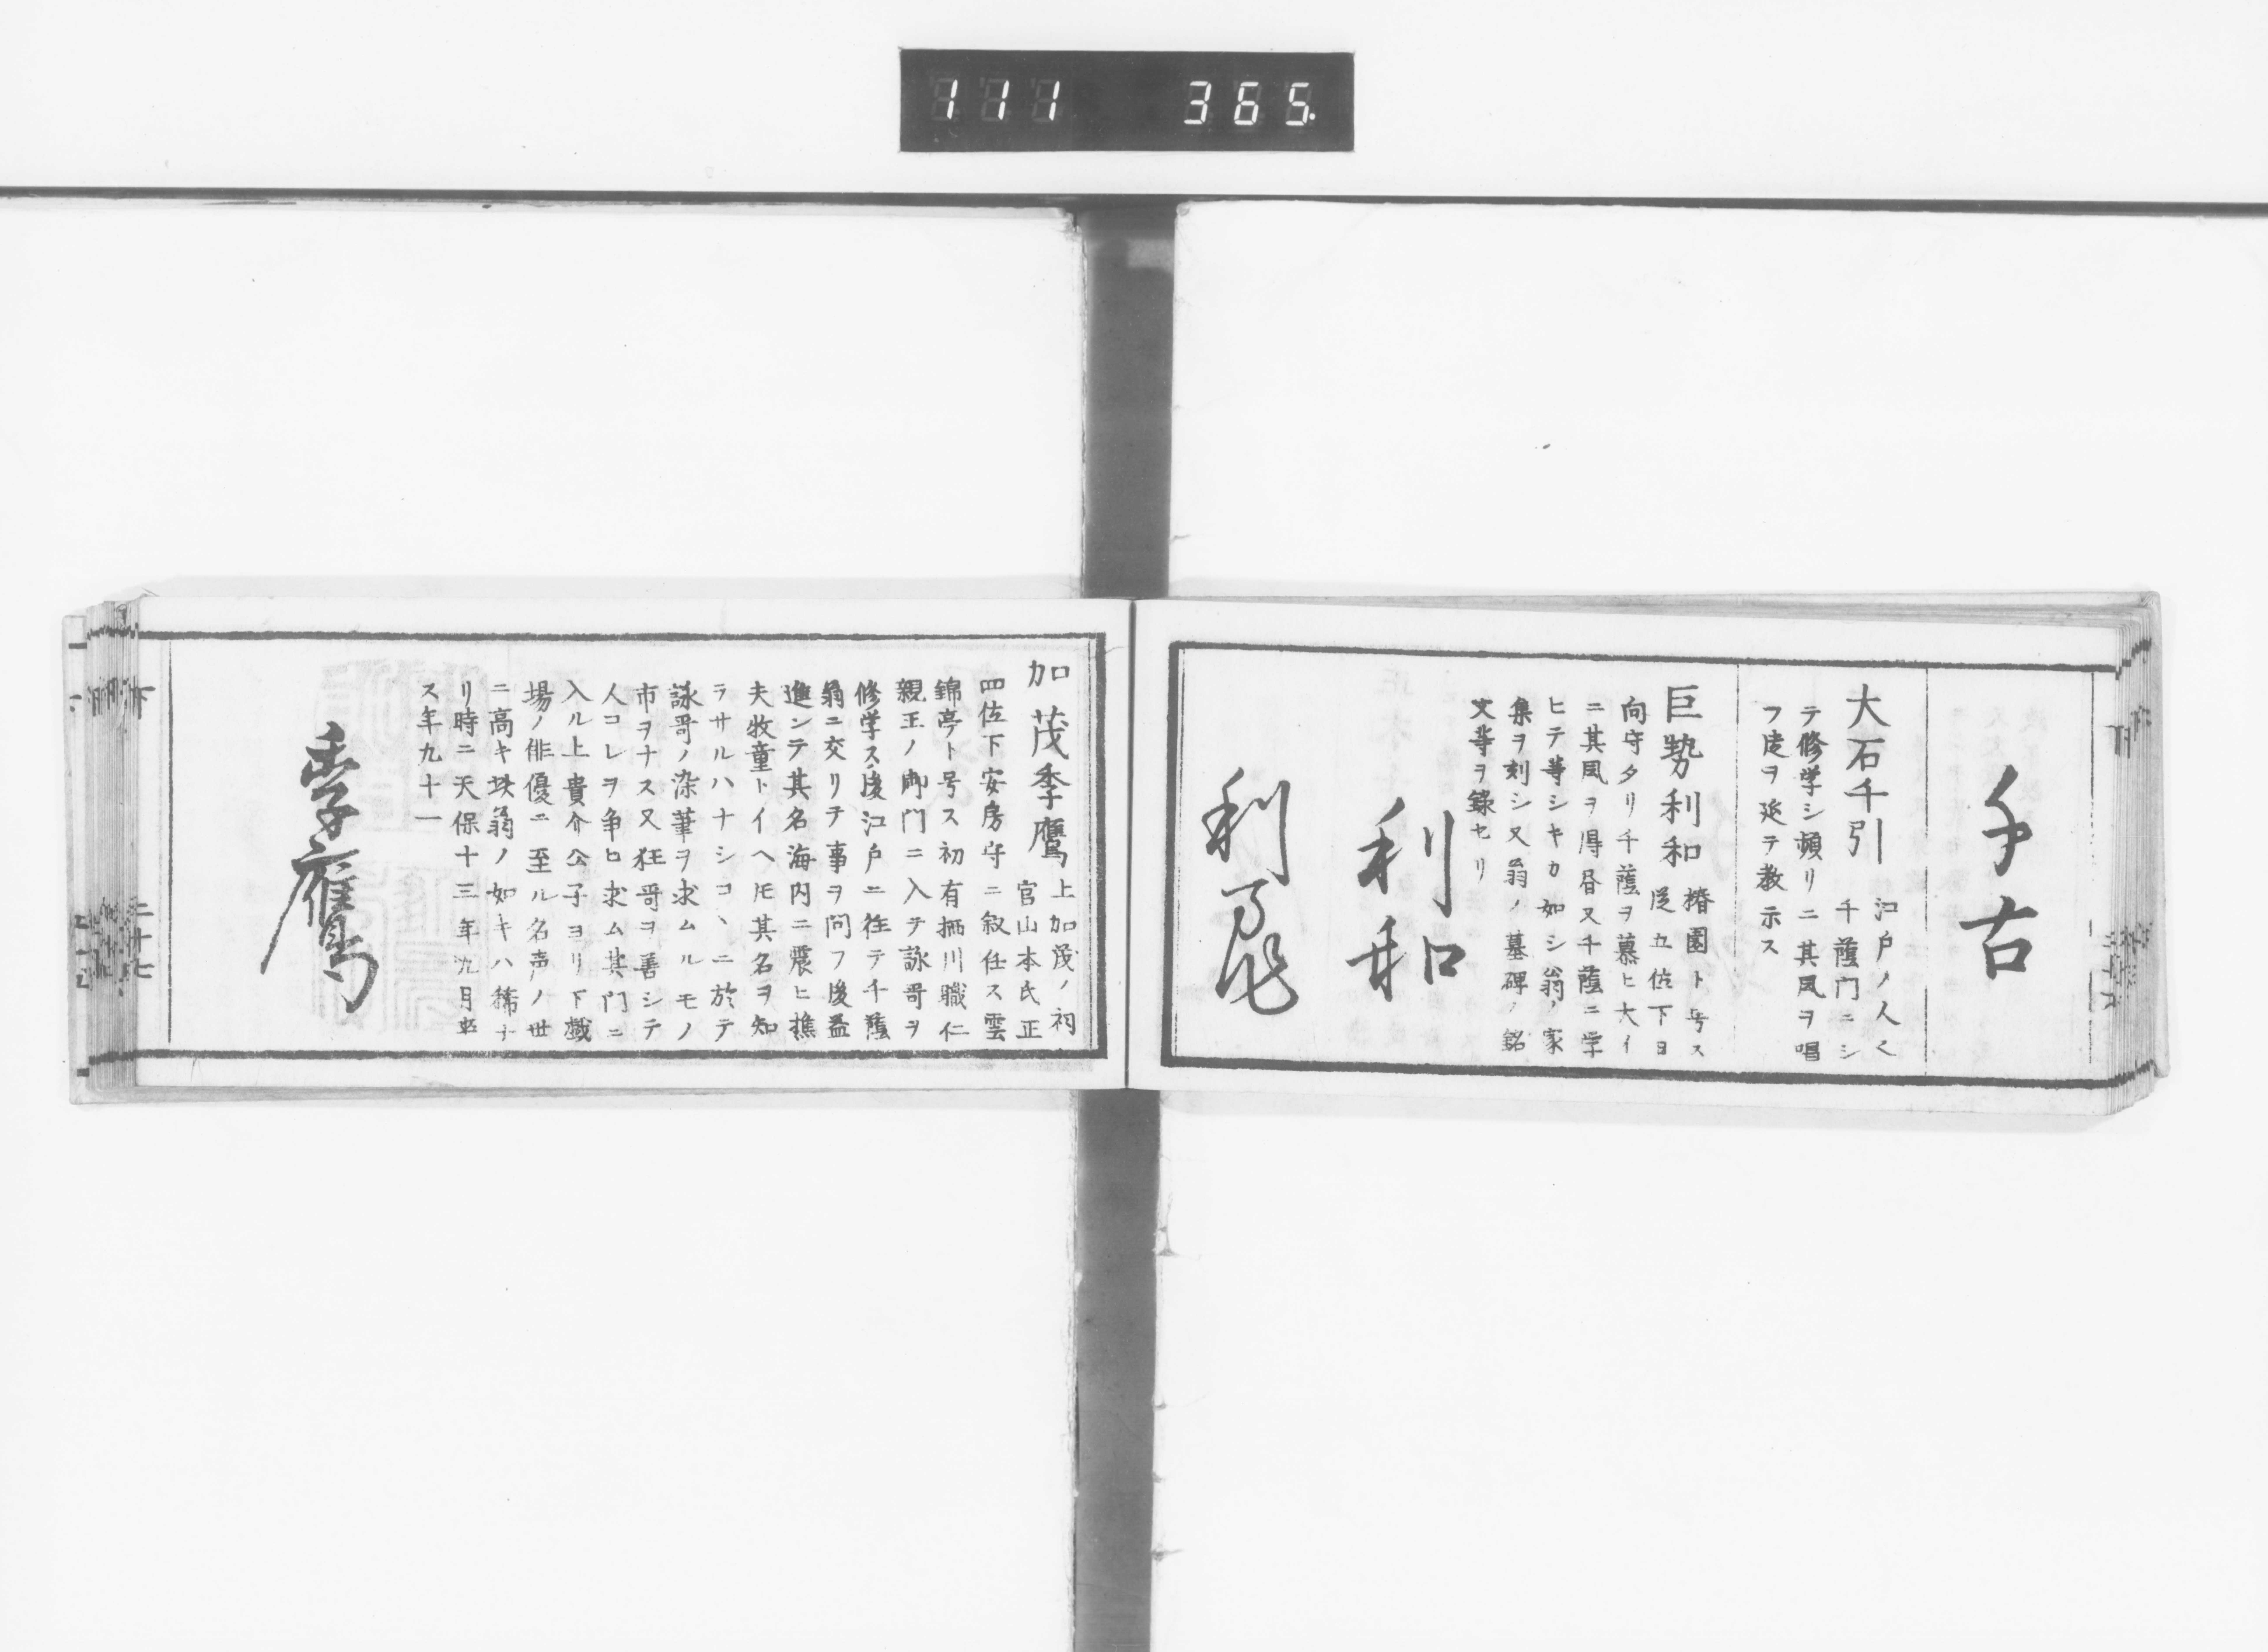 111 365
千古
大石千引 江戸ノ人く
千蔭門ニシ
テ修学シ頻リニ其風ヲ唱
フ徒ヲ延テ教示ス
巨勢利和 椿園ト号ス
従五位下日
向守タリ千蔭ヲ慕ヒ大イ
ニ其風ヲ得昼又千蔭ニ学
ヒテ等シキカ如シ翁ノ家
集ヲ刻シ又翁ノ墓碑ノ銘
文等ヲ録セリ
利和
利
加茂季鷹 上加茂ノ祠
官山本氏正
四位下安房守ニ叙任ス雲
錦亭ト号ス初有栖川職仁
親王ノ御門ニ入テ詠哥ヲ
修学ス後江戸ニ往テ千蔭
翁ニ交リテ事ヲ問フ後益
進ンテ其名海内ニ震ヒ樵
夫牧童トイヘ𪜈其名ヲ知
ラサルハナシコヽニ於テ
詠哥ノ染筆ヲ求ムルモノ
市ヲナス又狂哥ヲ善シテ
人コレヲ争ヒ求ム其門ニ
入ル上貴介公子ヨリ下戯
場ノ俳優ニ至ル名声ノ世
ニ高キ玆翁ノ如キハ稀ナ
リ時ニ天保十三年九月卒
ス年九十一
季鷹
下 二十七